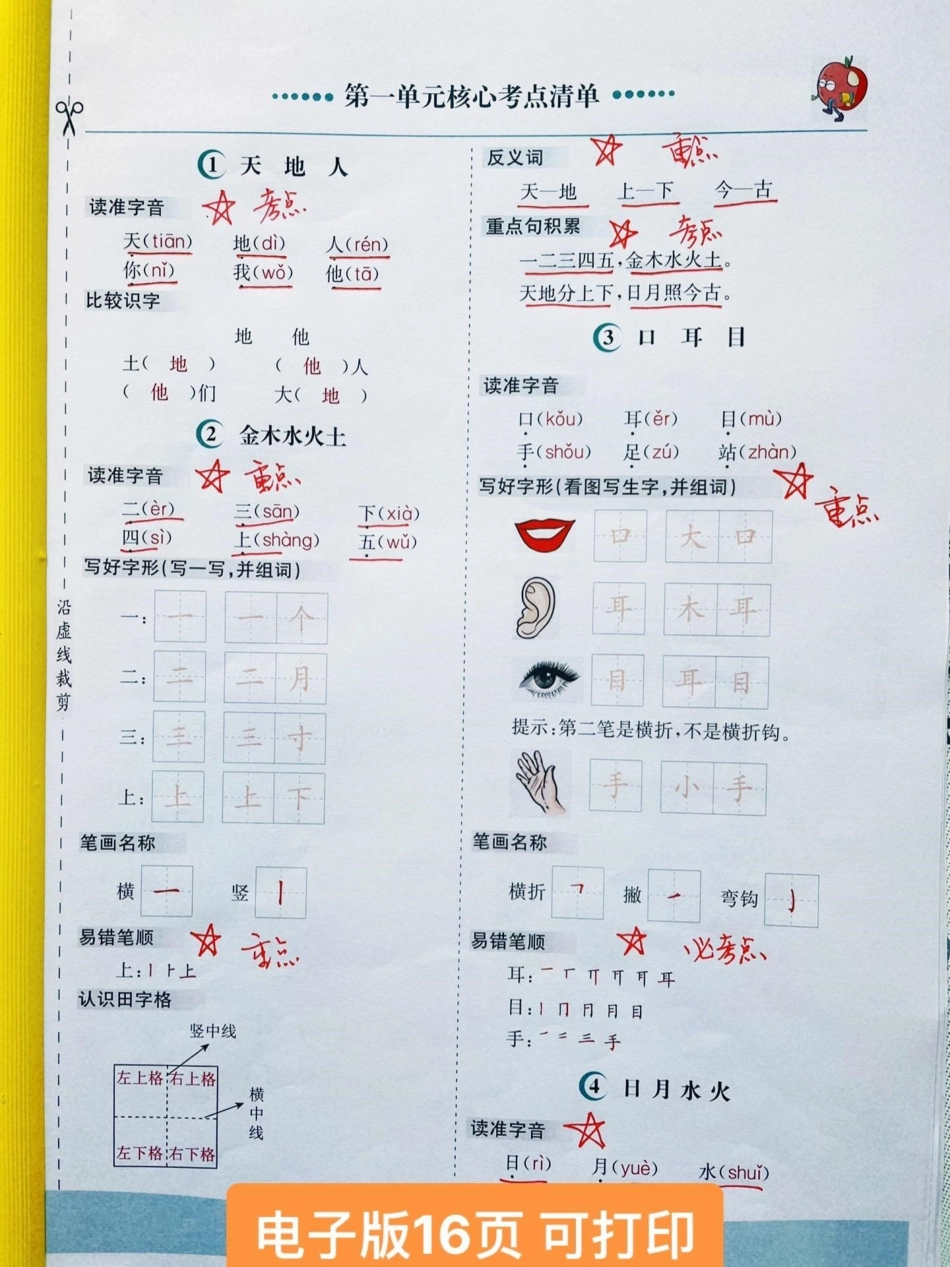 第一单元核心考点清单
1 天 地 人
读准字音 考点
天(tiān) 地(dì) 人(rén)
你(nǐ) 我(wǒ) 他(tā)
比较识字
地 他
土( 地 ) ( 他 )人
( 他 )们 大( 地 )
2 金木水火土
读准字音 重点
二(èr) 三(sān) 下(xià)
四(sì) 上(shàng) 五(wǔ)
写好字形(写一写,并组词)
一: 一 一个
二: 二 二月
三: 三 三寸
上: 上 上下
笔画名称
横 一 竖 丨
易错笔顺 重点
上:丨 ⺊ 上
认识田字格
竖中线
左上格 右上格
横中线
左下格 右下格
沿虚线裁剪
反义词 重点
天—地 上—下 今—古
重点句积累 考点
一二三四五,金木水火土。
天地分上下,日月照今古。
3 口 耳 目
读准字音
口(kǒu) 耳(ěr) 目(mù)
手(shǒu) 足(zú) 站(zhàn)
写好字形(看图写生字,并组词) 重点
口 大口
耳 木耳
目 耳目
提示:第二笔是横折,不是横折钩。
手 小手
笔画名称
横折 ㇕ 撇 ㇒ 弯钩 ㇁
易错笔顺 必考点
耳: 耳
目: 目
手: 手
4 日月水火
读准字音
日(rì) 月(yuè) 水(shuǐ)
电子版16页 可打印